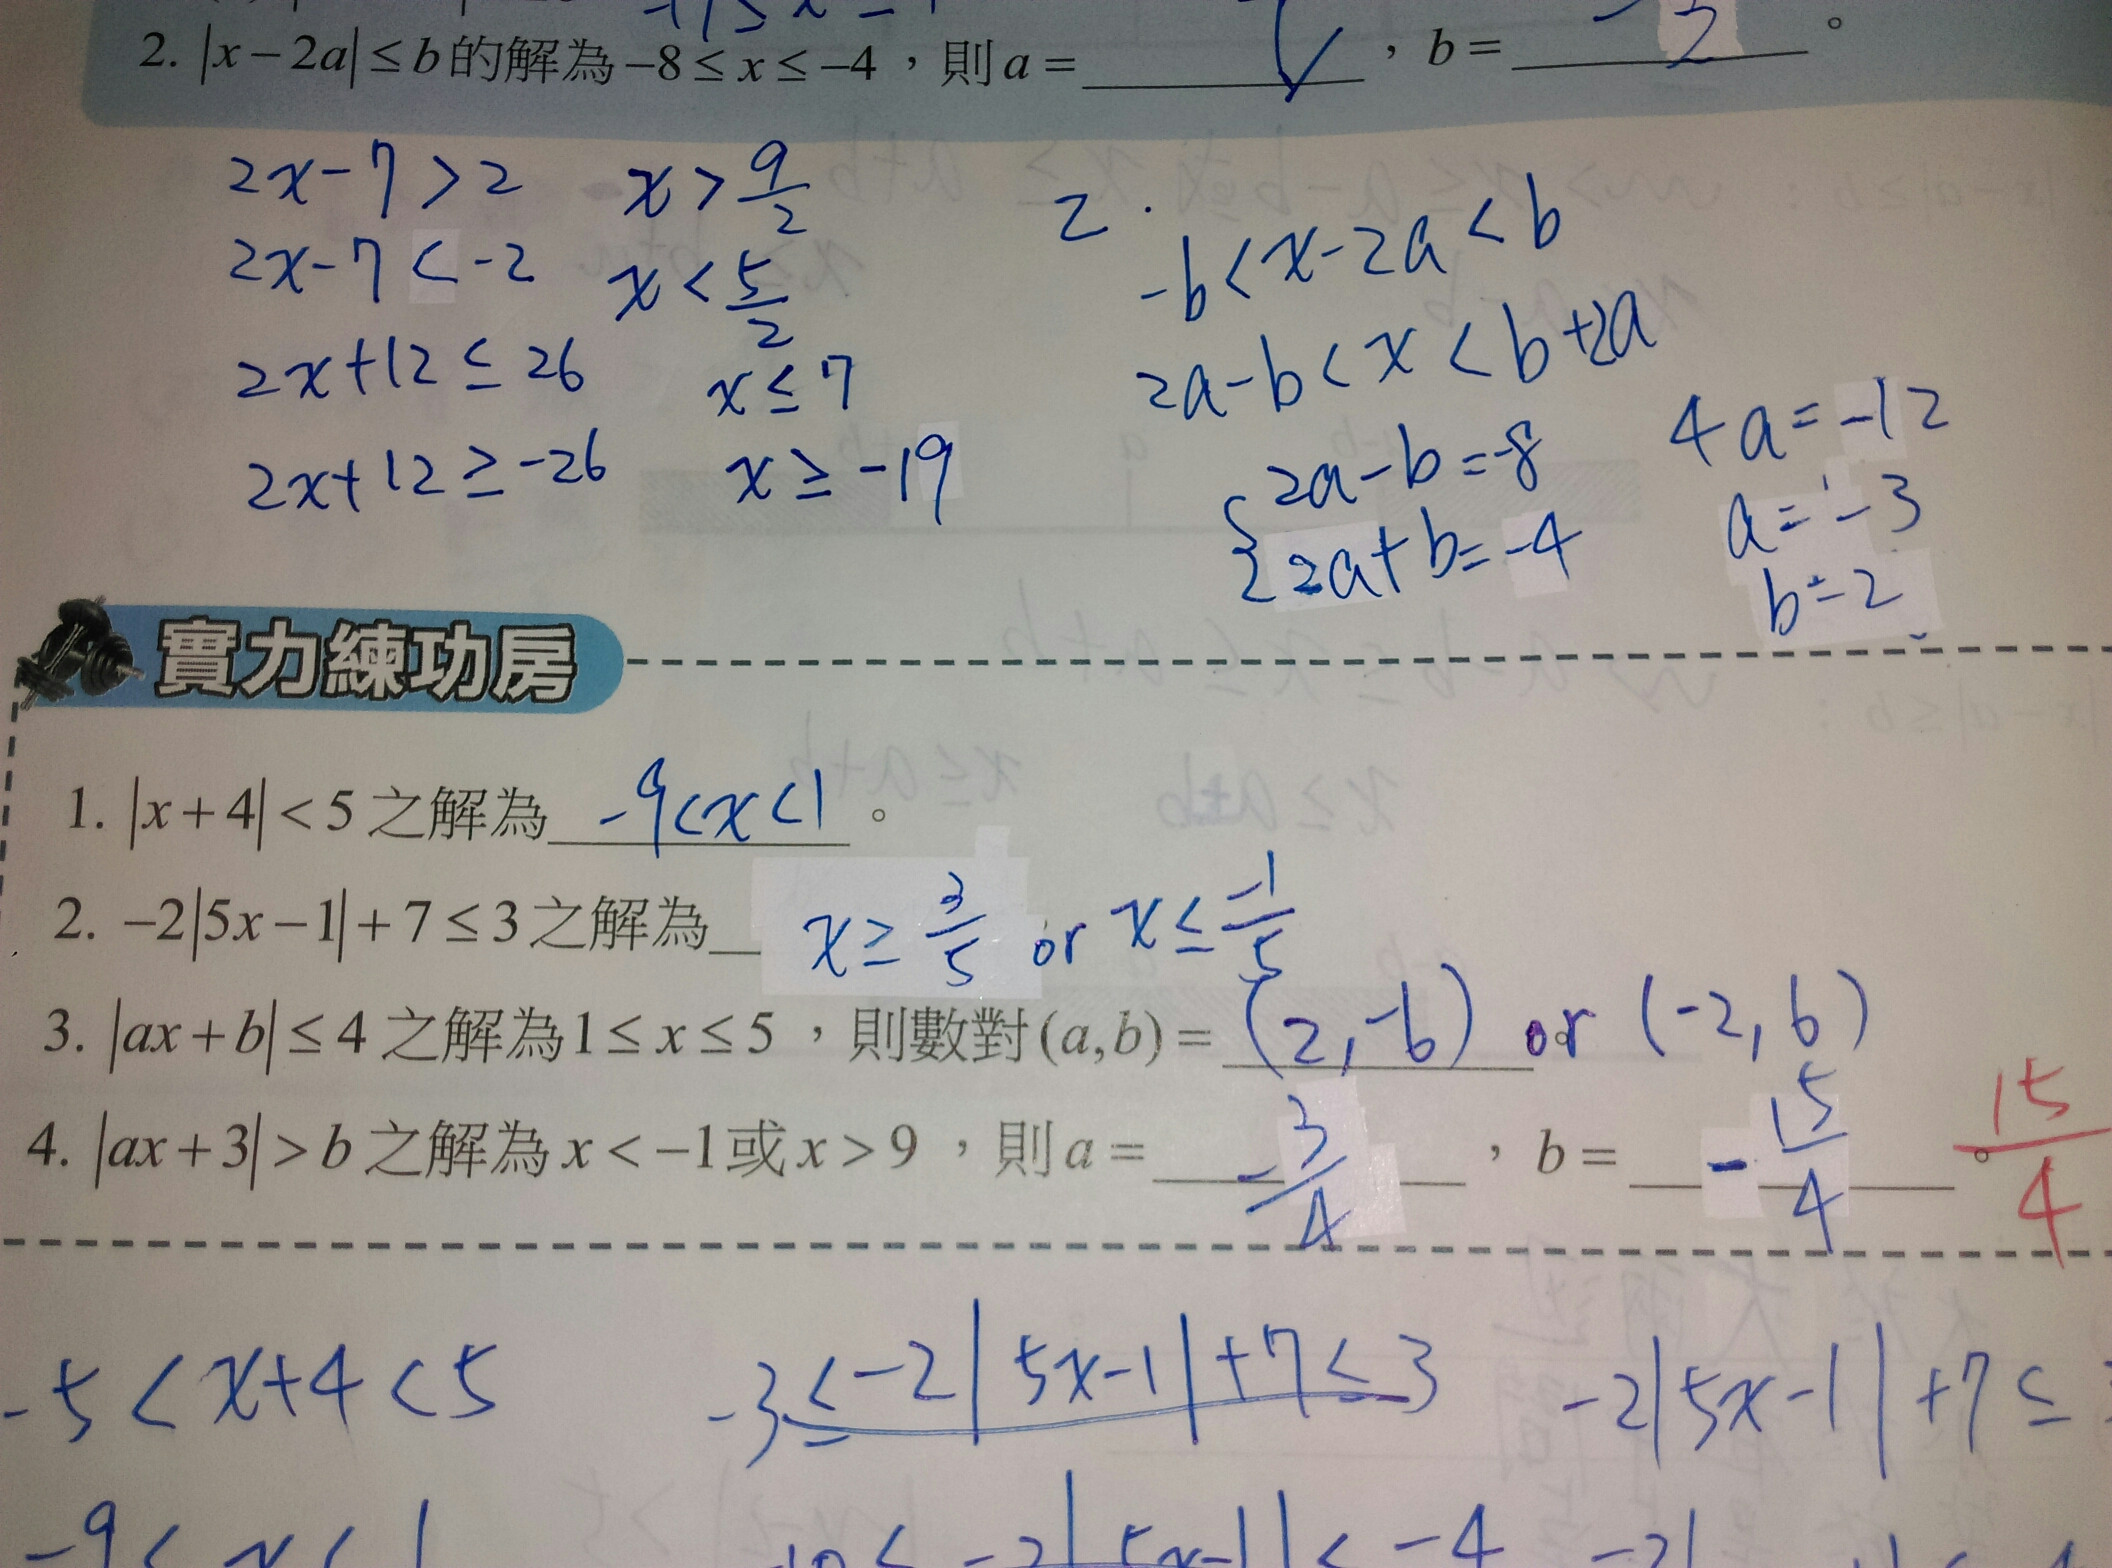 2. |x-2a|≤b的解為-8≤x≤-4，則a=______，b=______。
2x-7>2 x>9/2
2x-7<-2 x<5/2
2x+12≤26 x≤7
2x+12≥-26 x≥-19
2.
-b<x-2a<b
2a-b<x<b+2a
{2a-b=-8
2a+b=-4
4a=-12
a=-3
b=2
實力練功房
1. |x+4|<5之解為 -9<x<1 。
2. -2|5x-1|+7≤3之解為 x≥3/5 or x≤-1/5
3. |ax+b|≤4之解為1≤x≤5，則數對(a,b)= (2,-6) or (-2,6)
4. |ax+3|>b之解為x<-1或x>9，則a= -3/4 ，b= -15/4 。 15/4
-5<x+4<5 -3≤-2|5x-1|+7≤3 -2|5x-1|+7≤
-9<x<1 -2|5x-1|≤-4